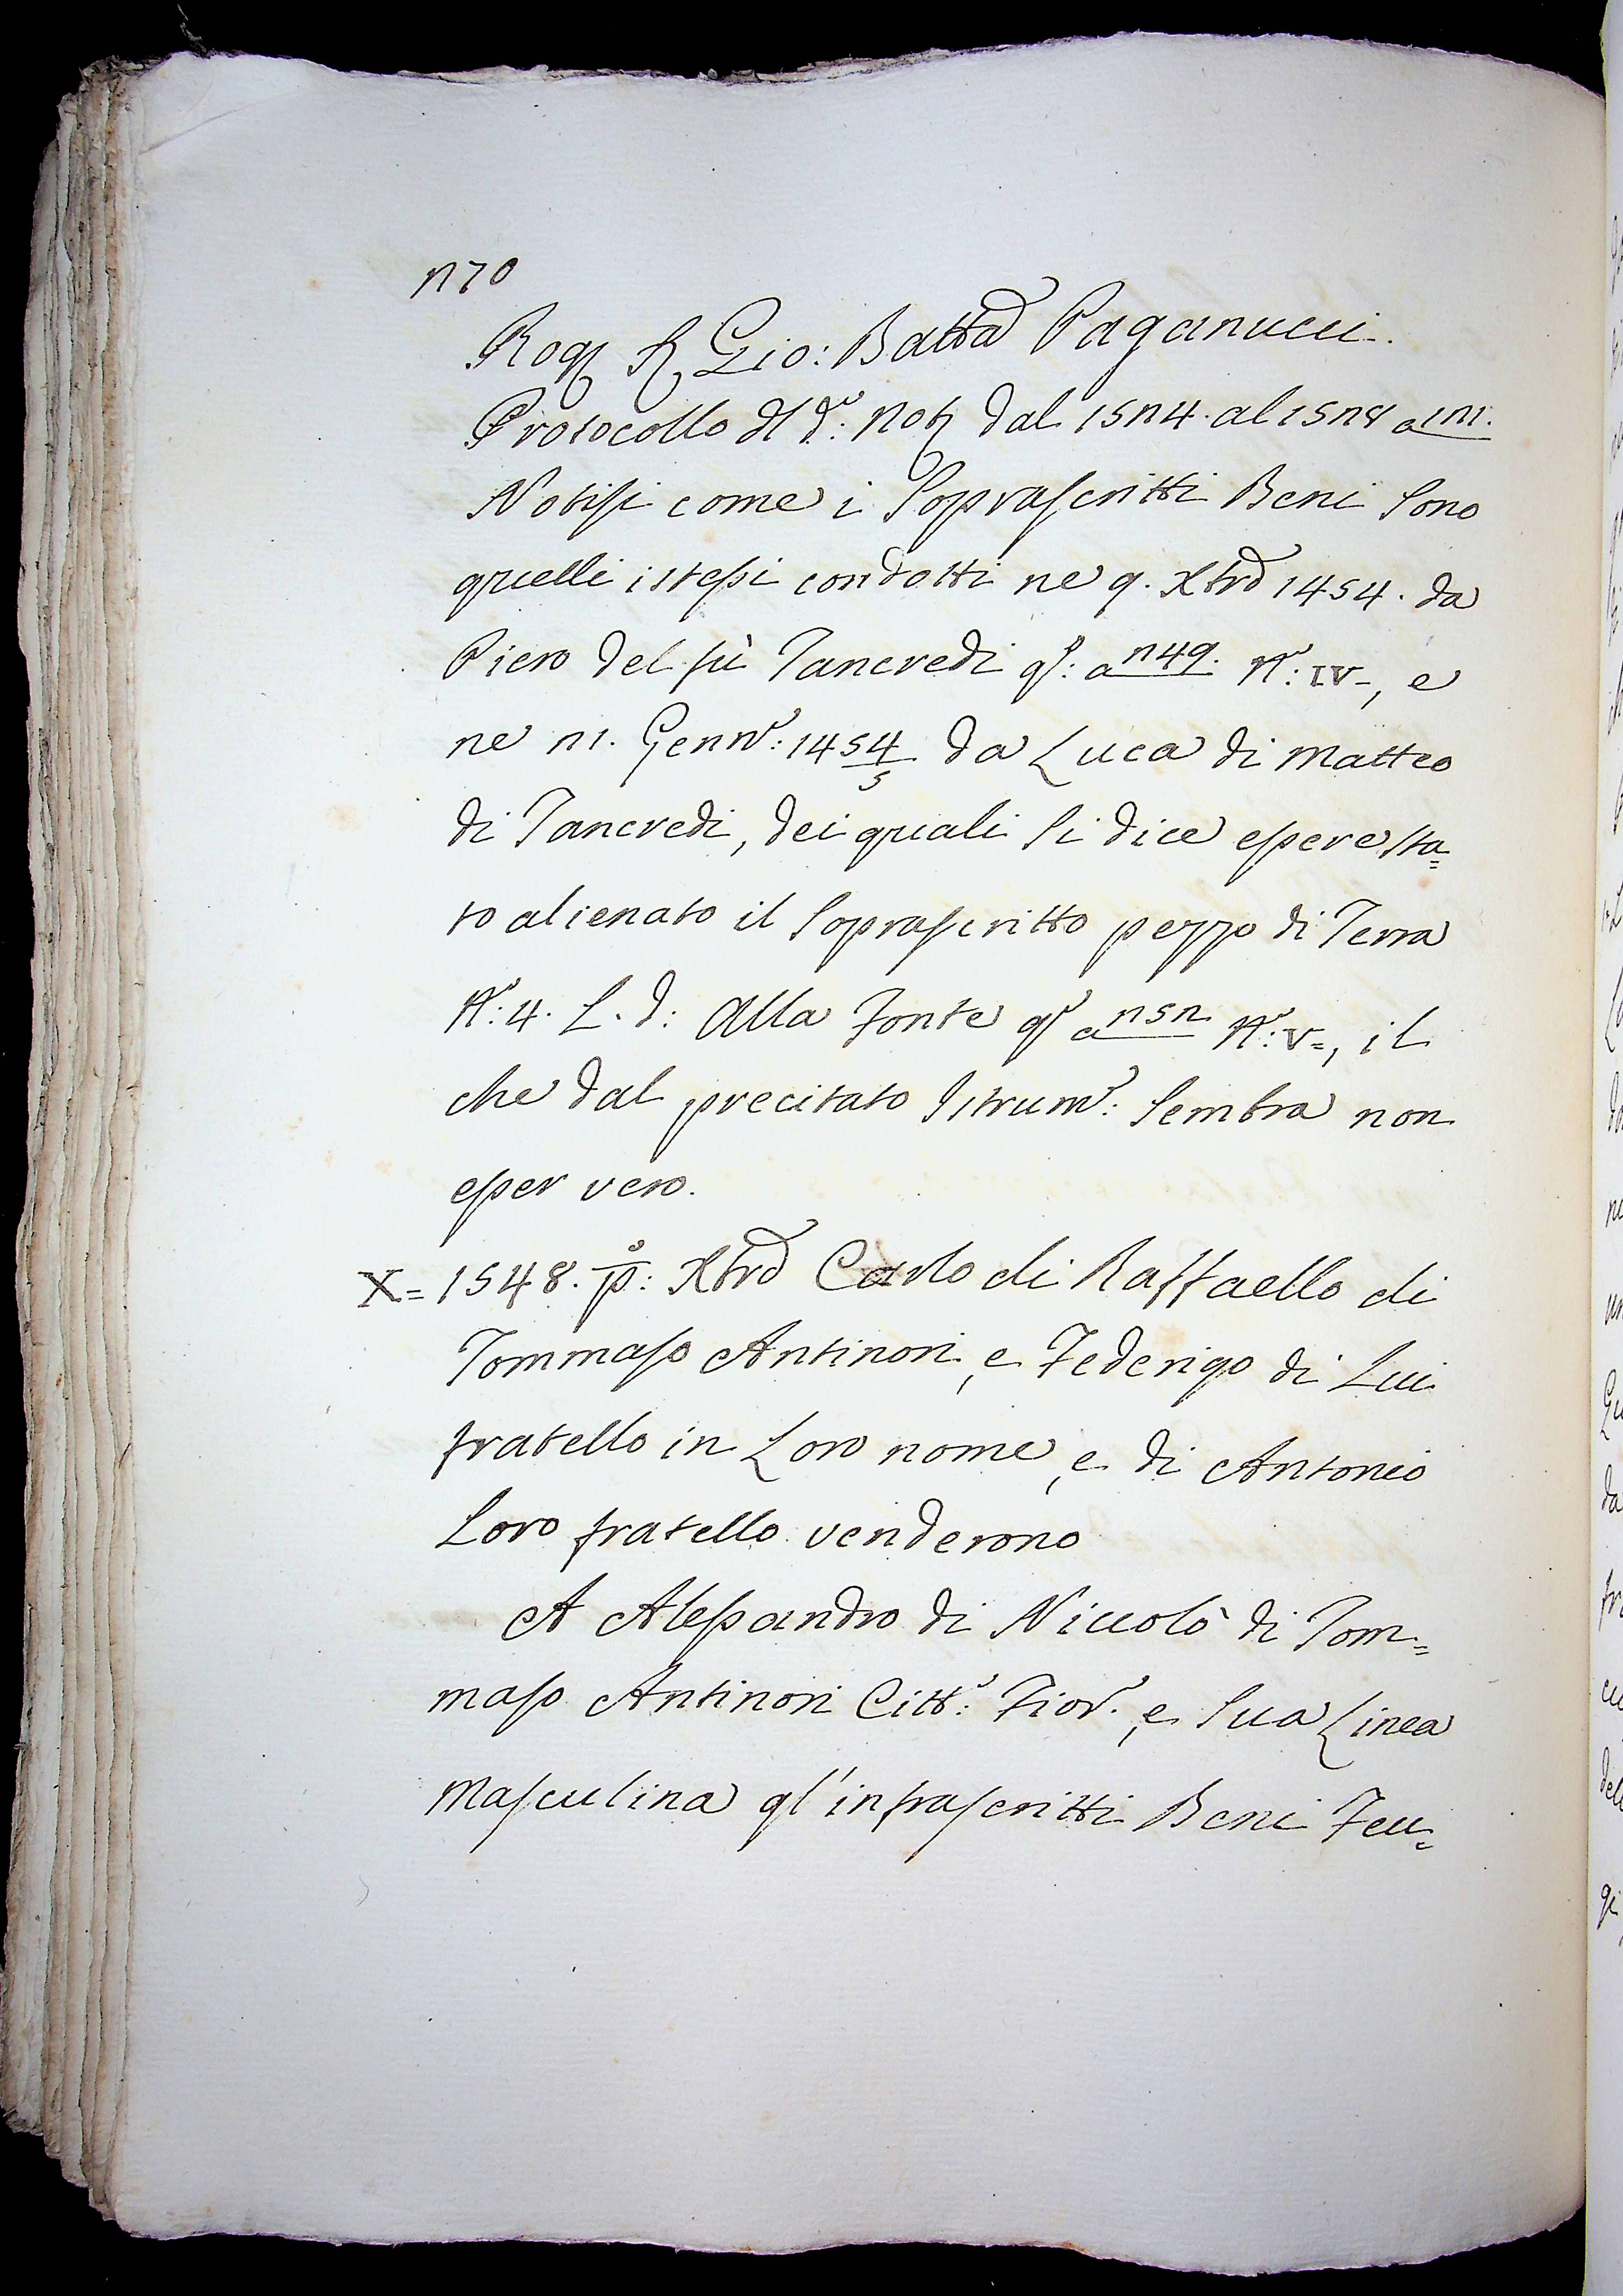 270
Rog. Ser Gio: Batta Paganucci.
Protocollo dl do: Not. dal 1524. al 1528 a 121.
Notisi come i Soprascritti Beni sono
quelli istessi condotti ne 9. Xbre 1454. da
Piero del fù Tancredi qo: a 249. No: IV-, e
ne 21. Genno: 1454/5 da Luca di Matteo
di Tancredi, dei quali si dice essere sta=
to alienato il soprascritto pezzo di Terra
No: 4. L. d: Alla Fonte qo a 252 No: V=, il
che dal precitato Istrumo: sembra non
esser vero.
X= 1548. po: Xbre Carlo di Raffaello di
Tommaso Antinori, e Federigo di Lui
fratello in Loro nome, e di Antonio
Loro fratello venderono
A Alessandro di Niccolò di Tom=
maso Antinori Citto: Fioro. e sua Linea
Masculina gl'infrascritti Beni Feu=